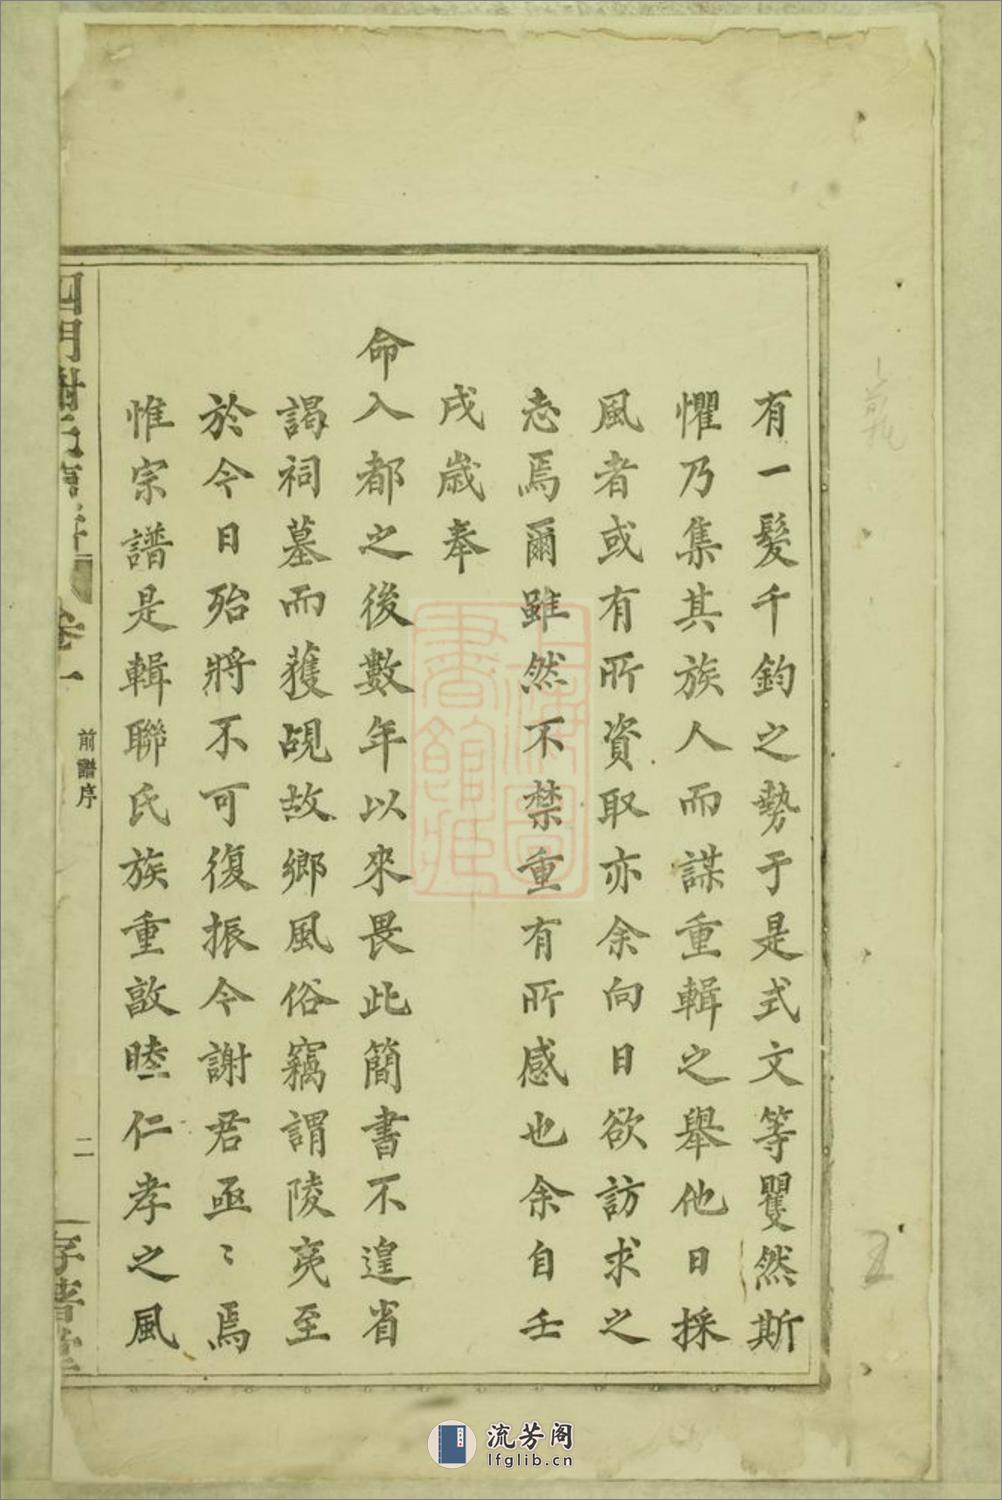 有一髮千鈞之勢于是式文等瞿然斯
懼乃集其族人而謀重輯之舉他日採
風者或有所資取亦余向日欲訪求之
志焉爾雖然不禁重有所感也余自壬
戌歲奉
命入都之後數年以來畏此簡書不遑省
謁祠墓而蒦覘故鄉風俗竊謂陵夷至
於今日殆將不可復振令謝君亟〻焉
惟宗譜是輯聯氏族重敦睦仁孝之風
四明謝氏
卷一
前譜序
二
存著堂
上海圖書館藏
流芳阁
lfglib.cn